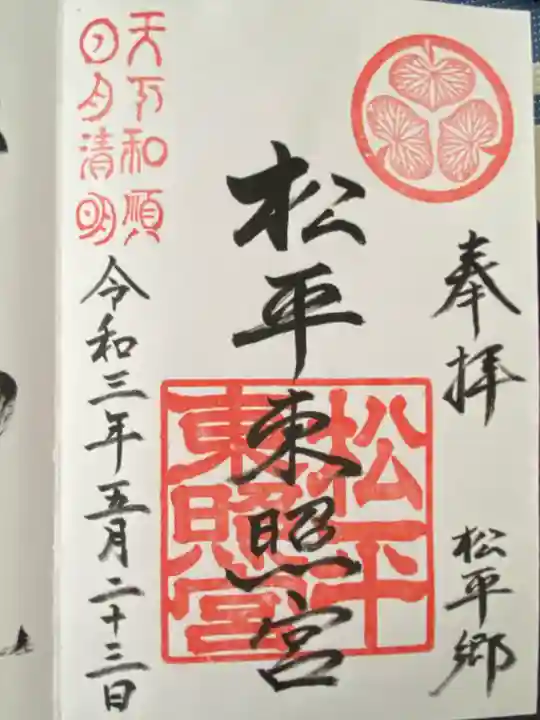 奉拝
松平郷
松平東照宮
松平
東照宮
天下和順
日月清明
令和三年五月二十三日